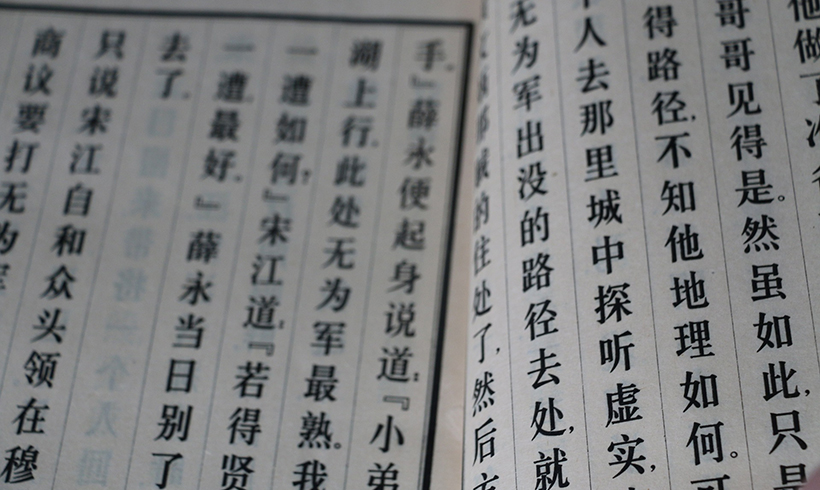 他做
哥哥见得是。然虽如此,只是
得路径,不知他地理如何。可
人去那里城中探听虚实,
无为军出没的路径去处,就
那贼的住处了,然后方
手。』薛永便起身说道:『小弟
湖上行。此处无为军最熟。我
一遭如何?』宋江道:『若得贤
一遭,最好。』薛永当日别了
去了。
只说宋江自和众头领在穆
商议要打无为军